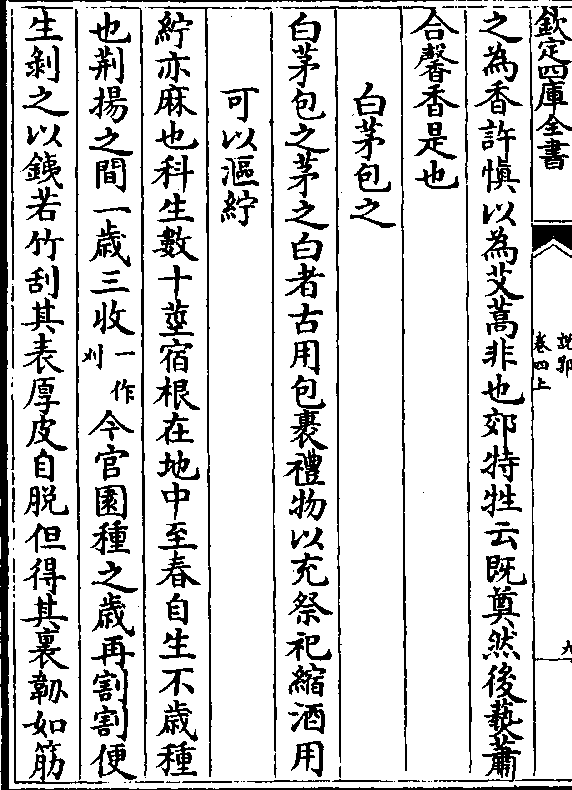 欽定四庫全書
說郛
卷四上
九
之為香許慎以為艾蒿非也郊特牲云既奠然後爇蕭
合馨香是也
白茅包之
白茅包之茅之白者古用包裹禮物以充祭祀縮酒用
可以漚紵
紵亦麻也科生數十莖宿根在地中至春自生不歳種
也荆揚之間一歳三收一作刈今官園種之歳再割割便
生剝之以鐵若竹刮其表厚皮自脱但得其裏韌如筋